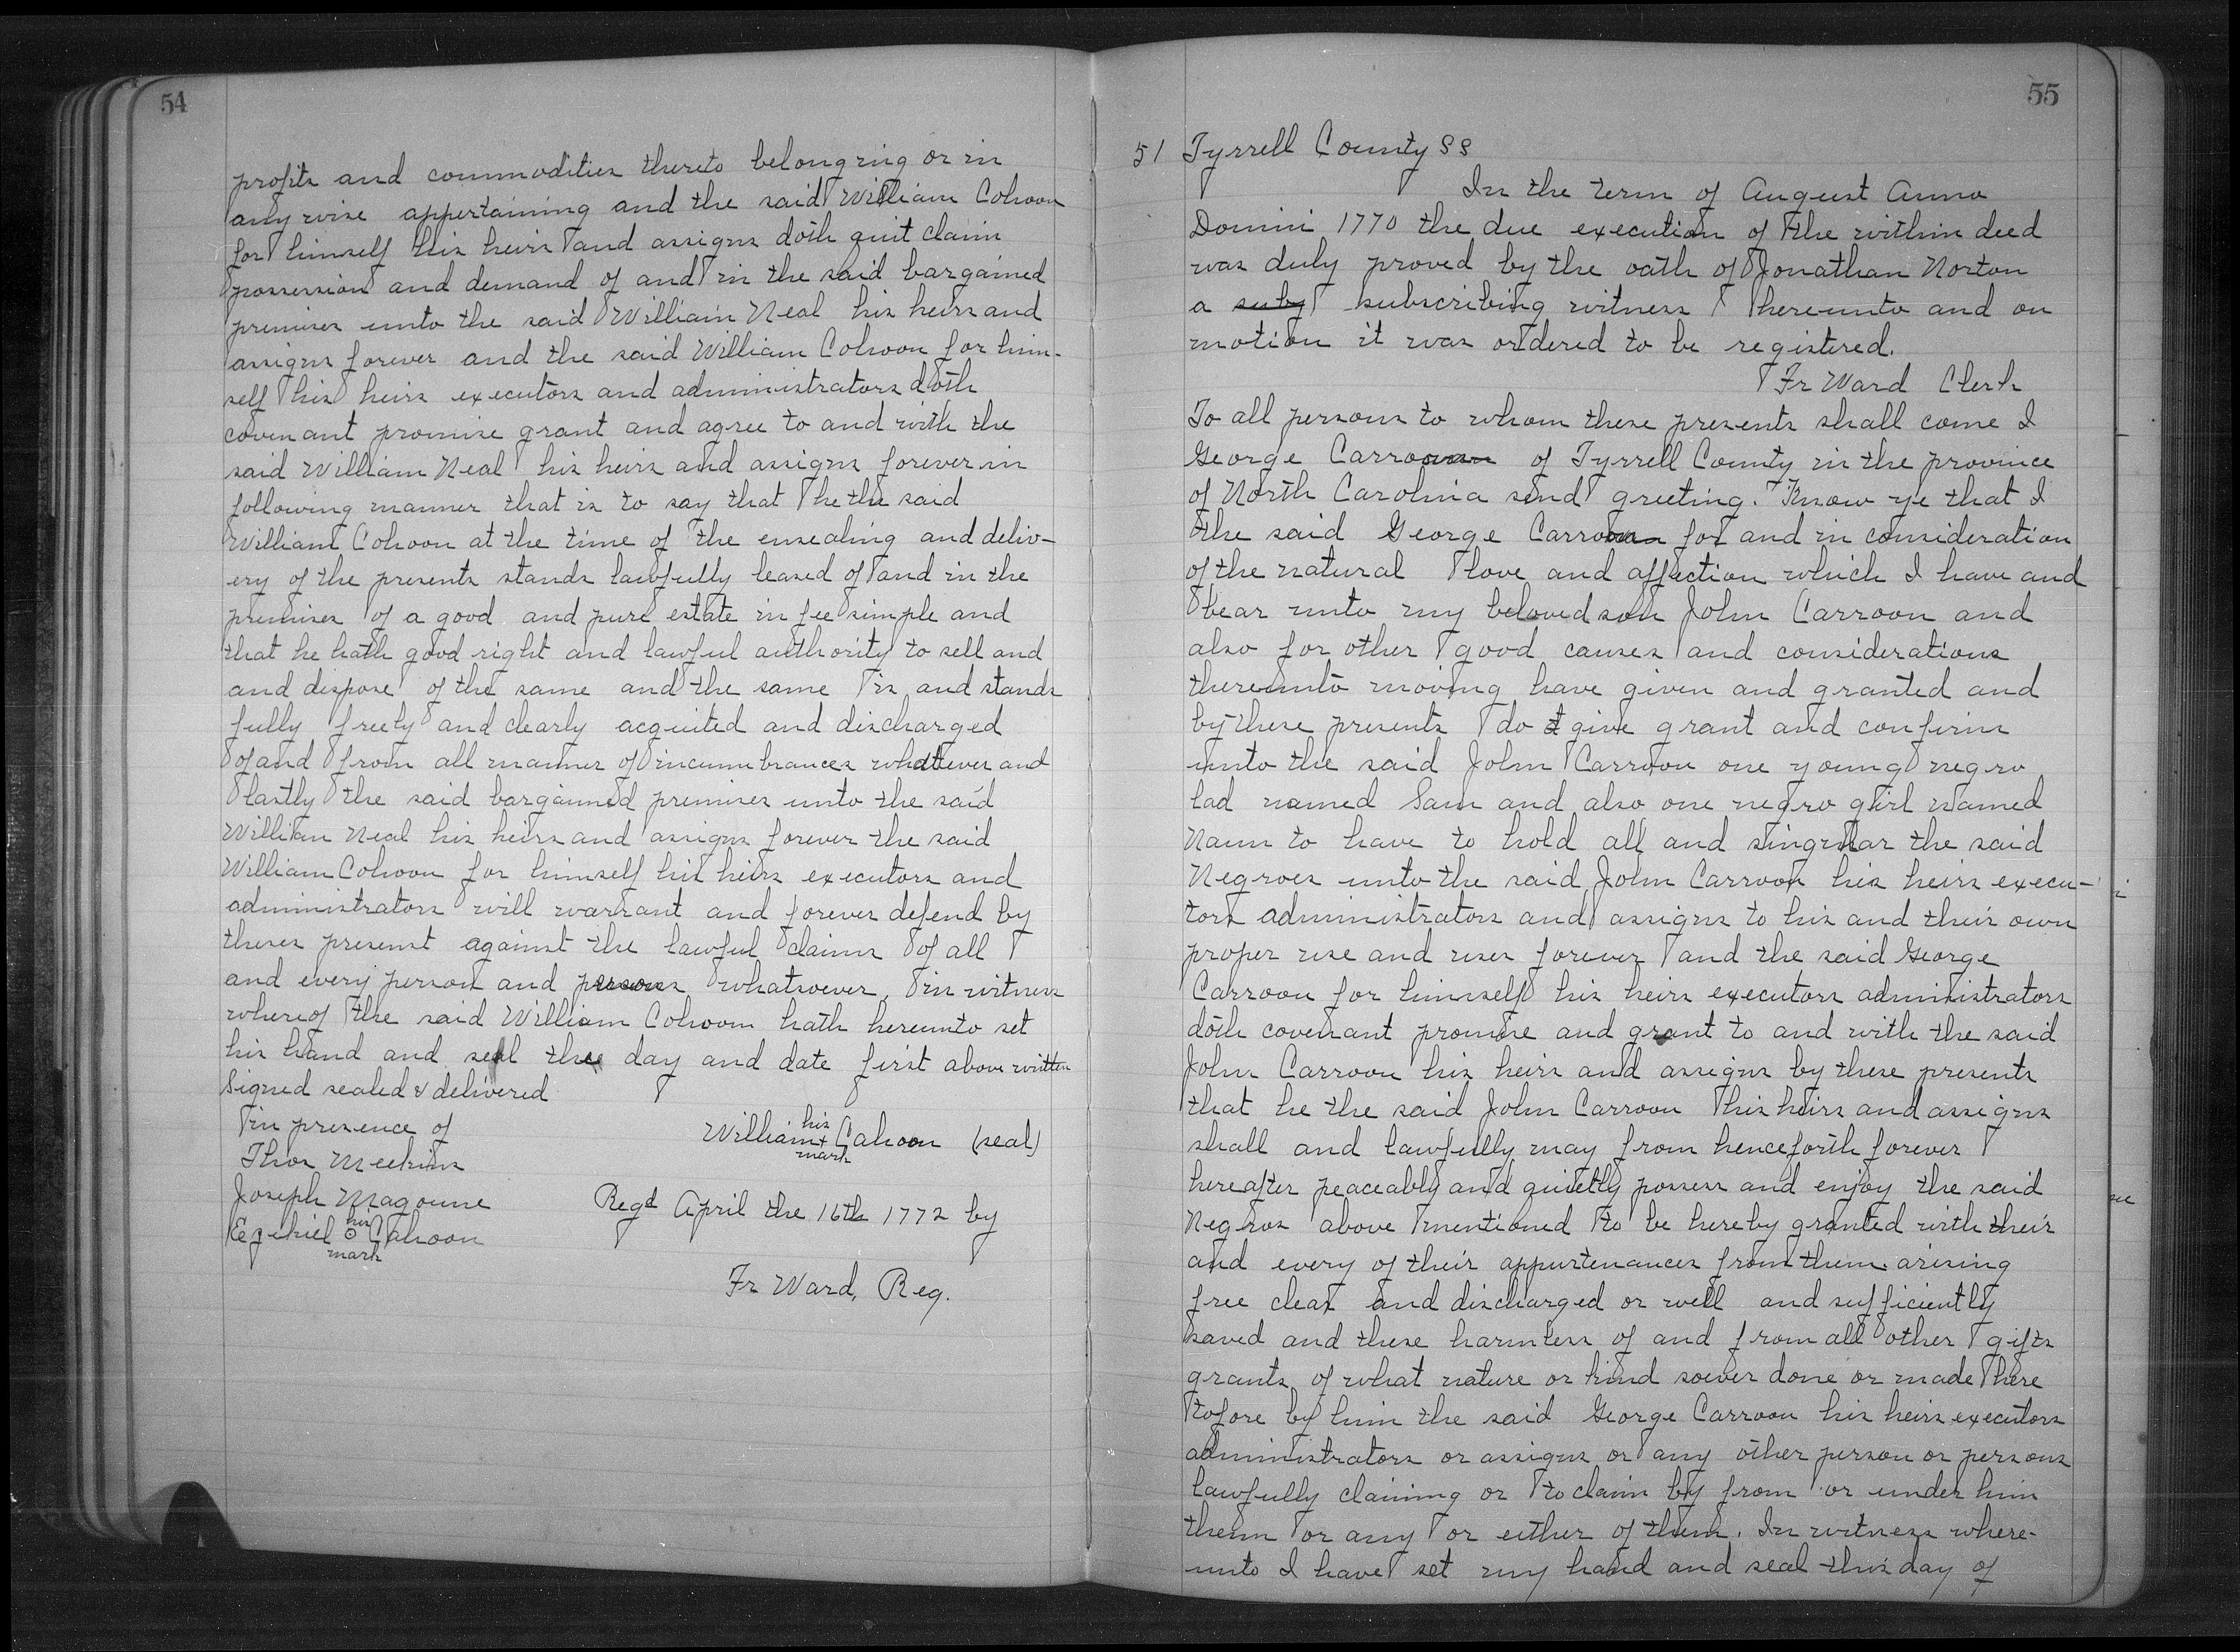 54
profits and commodities thereto belonging or in
any wise appertaining and the said William Cohoon
for himself his heirs and assigns doth quit claim
possession and demand of and in the said bargained
premises unto the said William Neal his heirs and
assigns forever and the said William Cohoon for him-
self his heirs executors and administrators doth
covenant promise grant and agree to and with the
said William Neal his heirs and assigns forever in
following manner that is to say that he the said
William Cohoon at the time of the ensealing and deliv-
ery of the presents stands lawfully leased of and in the
premises of a good and pure estate in fee simple and
that he hath good right and lawful authority to sell and
and dispose of the same and the same is and stands
fully freely and clearly acquited and discharged
of and from all manner of incumbrances whatever and
lastly the said bargained premises unto the said
William Neal his heirs and assigns forever the said
William Cohoon for himself his heirs executors and
administrators will warrant and forever defend by
theses presemt against the lawful claims of all
and every person and persons whatsoever, in witness
whereof the said William Cohoon hath hereunto set
his hand and seal thee day and date first above written
Signed sealed & delivered
in presence of
William his + mark Cahoon (seal)
Thos Meekins
Joseph Magoune
Ezekiel his o mark Cahoon
Regd April the 16th 1772 by
Fr Ward, Reg.
55
51 Tyrrell County SS
In the term of August Anno
Domini 1770 the due execution of the within deed
was duly proved by the oath of Jonathan Norton
a suby subscribing witness hereunto and on
motion it was ordered to be registered.
Fr Ward Clerk
To all persons to whom these presents shall come I
George Carroon of Tyrrell County in the province
of North Carolina send greeting. Know ye that I
the said George Carroon for and in consideration
of the natural love and affection which I have and
bear unto my beloved son John Carroon and
also for other good causes and considerations
thereunto moving have given and granted and
by these presents do t give grant and confirm
unto the said John Carroon one young negro
lad named Sam and also one negro girl named
Nann to have to hold all and singular the said
Negroes unto the said John Carroon his heirs execu-
tors administrators and assigns to his and their own
proper use and uses forever and the said George
Carroon for himself his heirs executors administrators
doth covenant promise and grant to and with the said
John Carroon his heirs and assigns by these presents
that he the said John Carroon his heirs and assigns
shall and lawfully may from henceforth forever
hereafter peaceably and quietly possess and enjoy the said
Negros above mentioned to be hereby granted with their
and every of their appurtenances from them arising
free clear and discharged or well and sufficiently
saved and these harmless of and from all other gifts
grants of what nature or kind soever done or made here
tofore by him the said George Carroon his heirs executors
administrators or assigns or any other person or persons
lawfully claiming or to claim by from or under him
them or any or either of them. In witness where-
unto I have set my hand and seal this day of